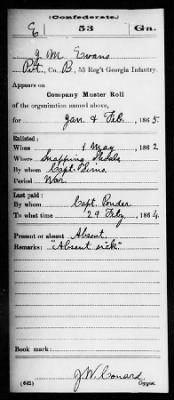 (Confederate.)
E 53 Ga.
J. M. Evans
Pvt., Co. B, 53 Reg't Georgia Infantry.
Appears on
Company Muster Roll
of the organization named above,
for Jan & Feb, 1865
Enlisted:
When 1 May, 1862
Where Snapping Shoals
By whom Capt. Sims
Period War
Last paid:
By whom Capt. Ponder
To what time 29 Feby, 1864
Present or absent Absent
Remarks: "Absent sick"
Book mark:
(642) J. W. Conard
Copyist.